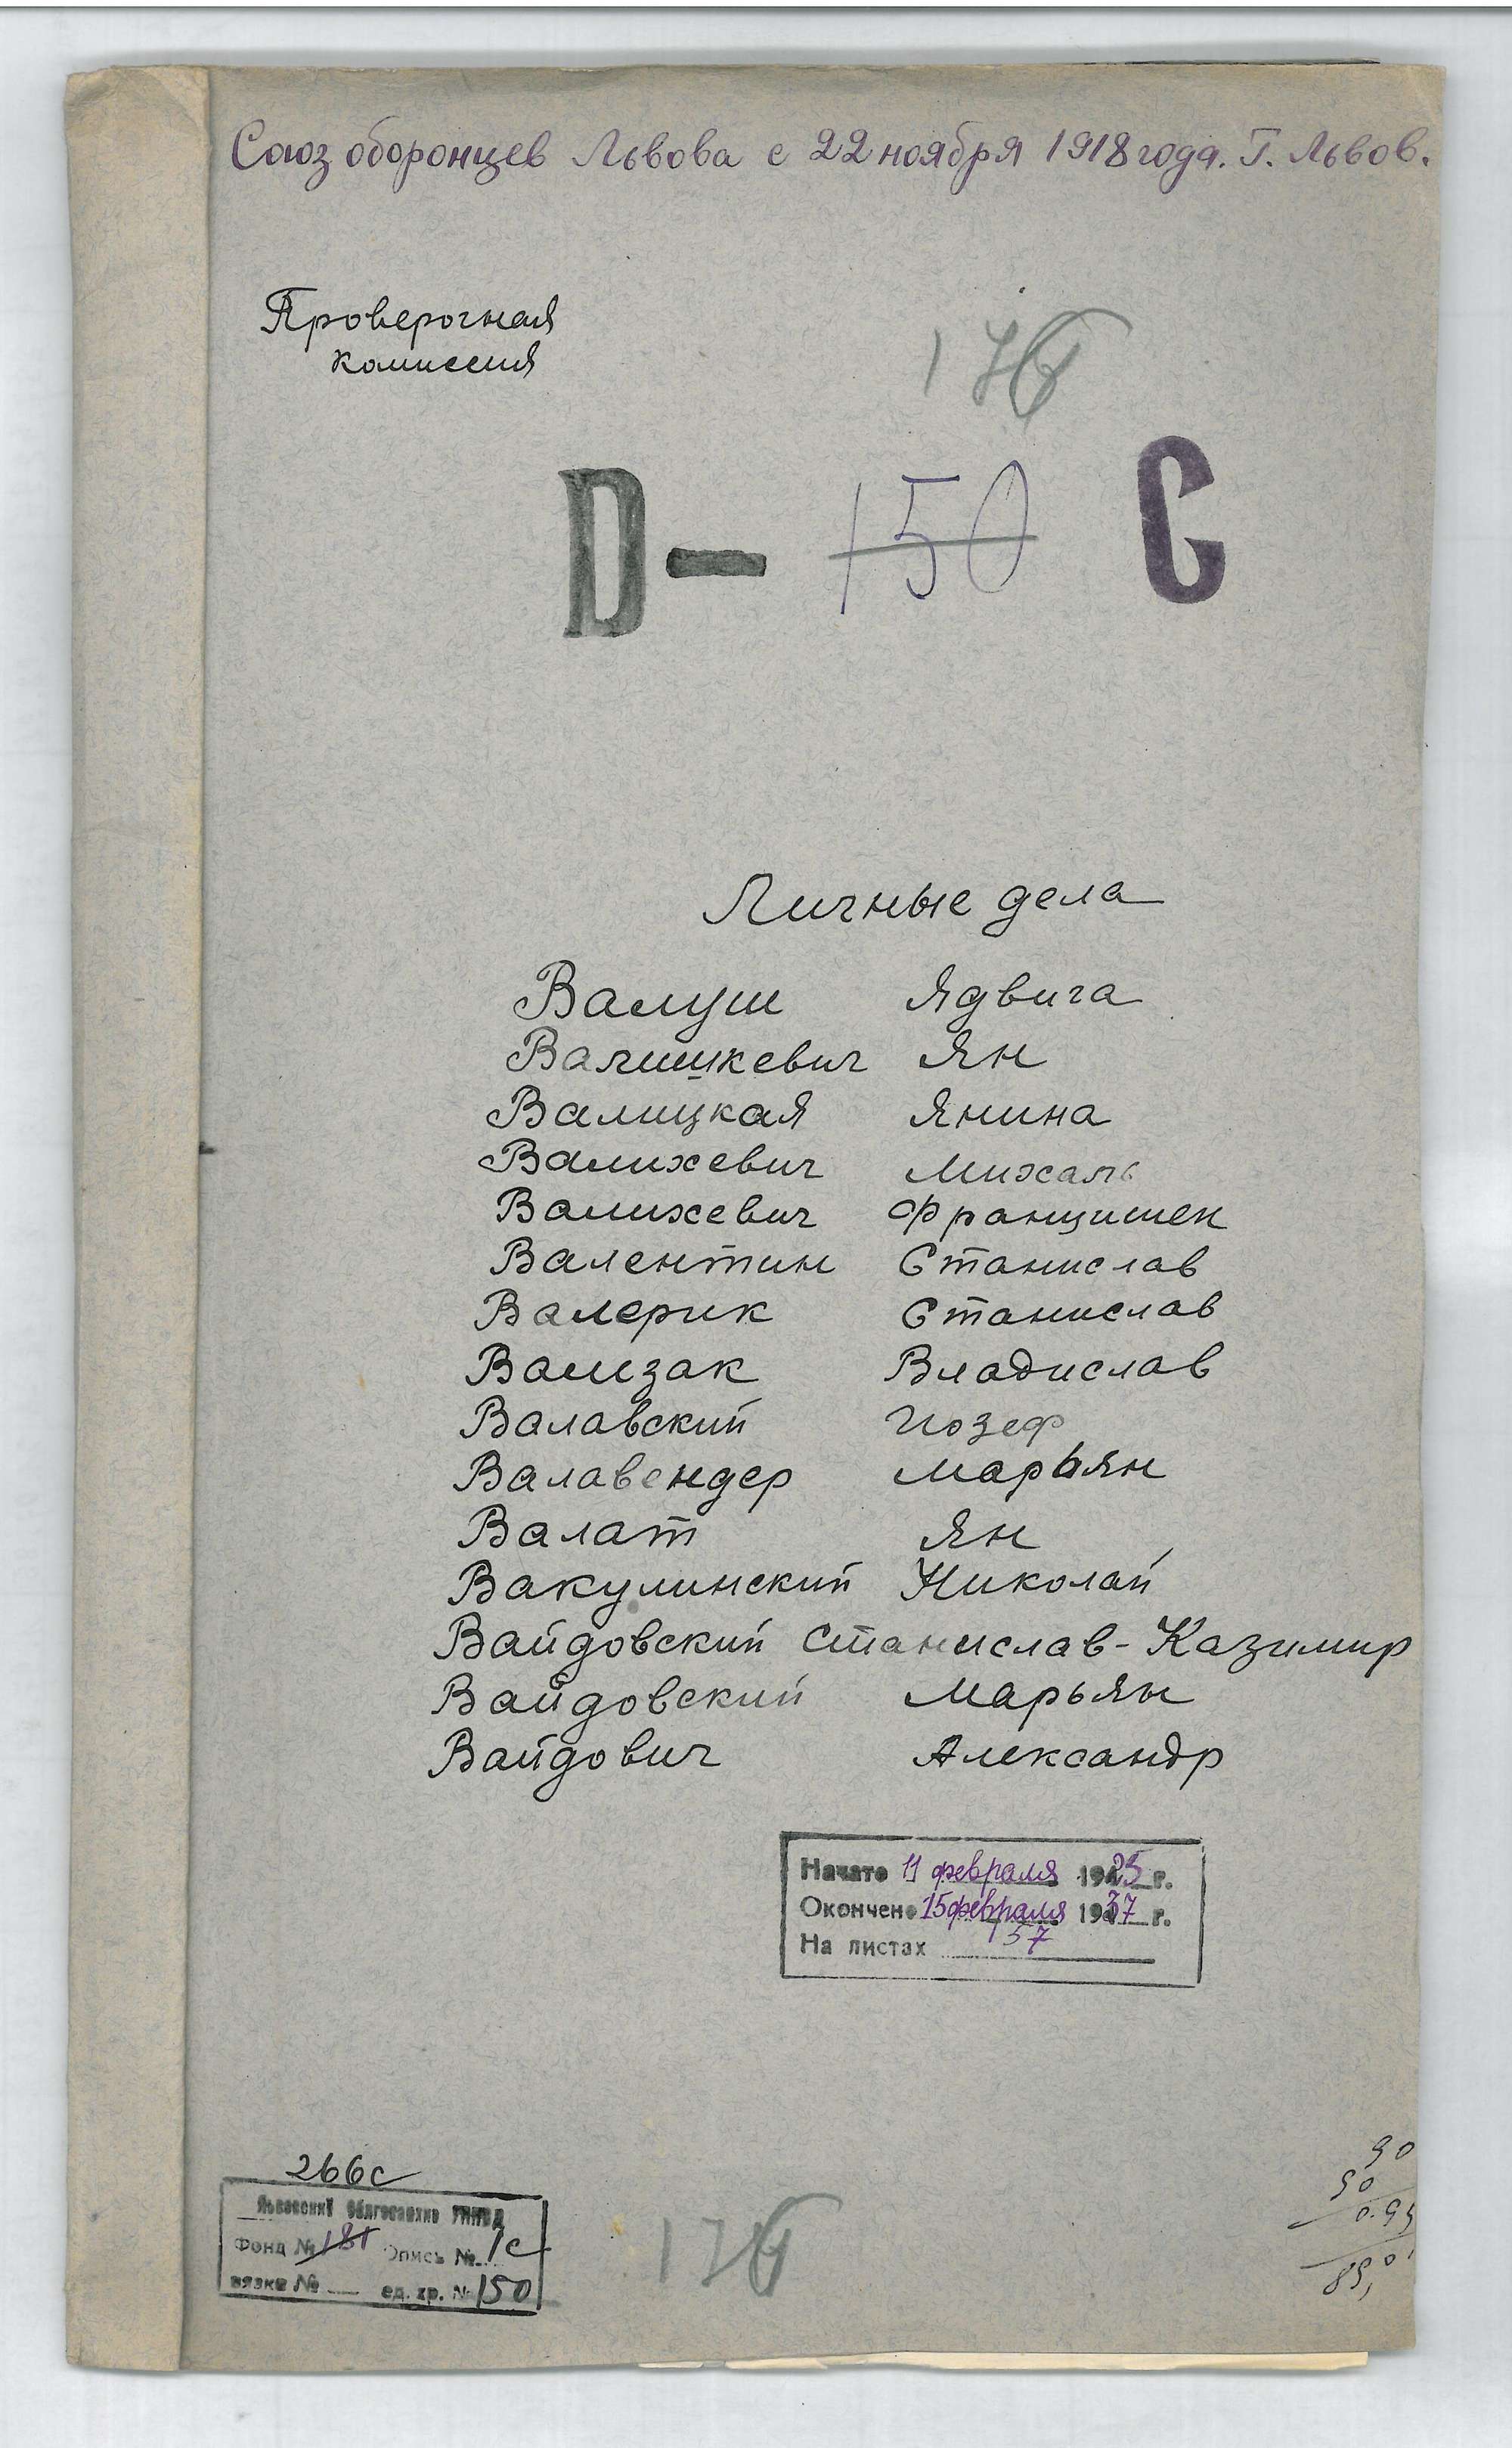 Союз оборонцев Львова с 22 ноября 1918 года. Г. Львов.
Проверочная
комиссия
176
D — 150 C
Личные дела
Валуш Ядвига
Валишкевич Ян
Валицкая Янина
Валихевич Михаль
Валихевич Францишек
Валентин Станислав
Валерик Станислав
Вализак Владислав
Валавский Иозеф
Валавендер Марьян
Валат Ян
Вакулинский Николай
Вайдовский Станислав-Казимир
Вайдовский Марьян
Вайдович Александр
Начато 11 февраля 1925 г.
Окончено 15 февраля 1937 г.
На листах 157
266с
Львовский Облгосархив УНКВД
Фонд № 181 Опись № 1с
вязка № ед. хр. № 150
176